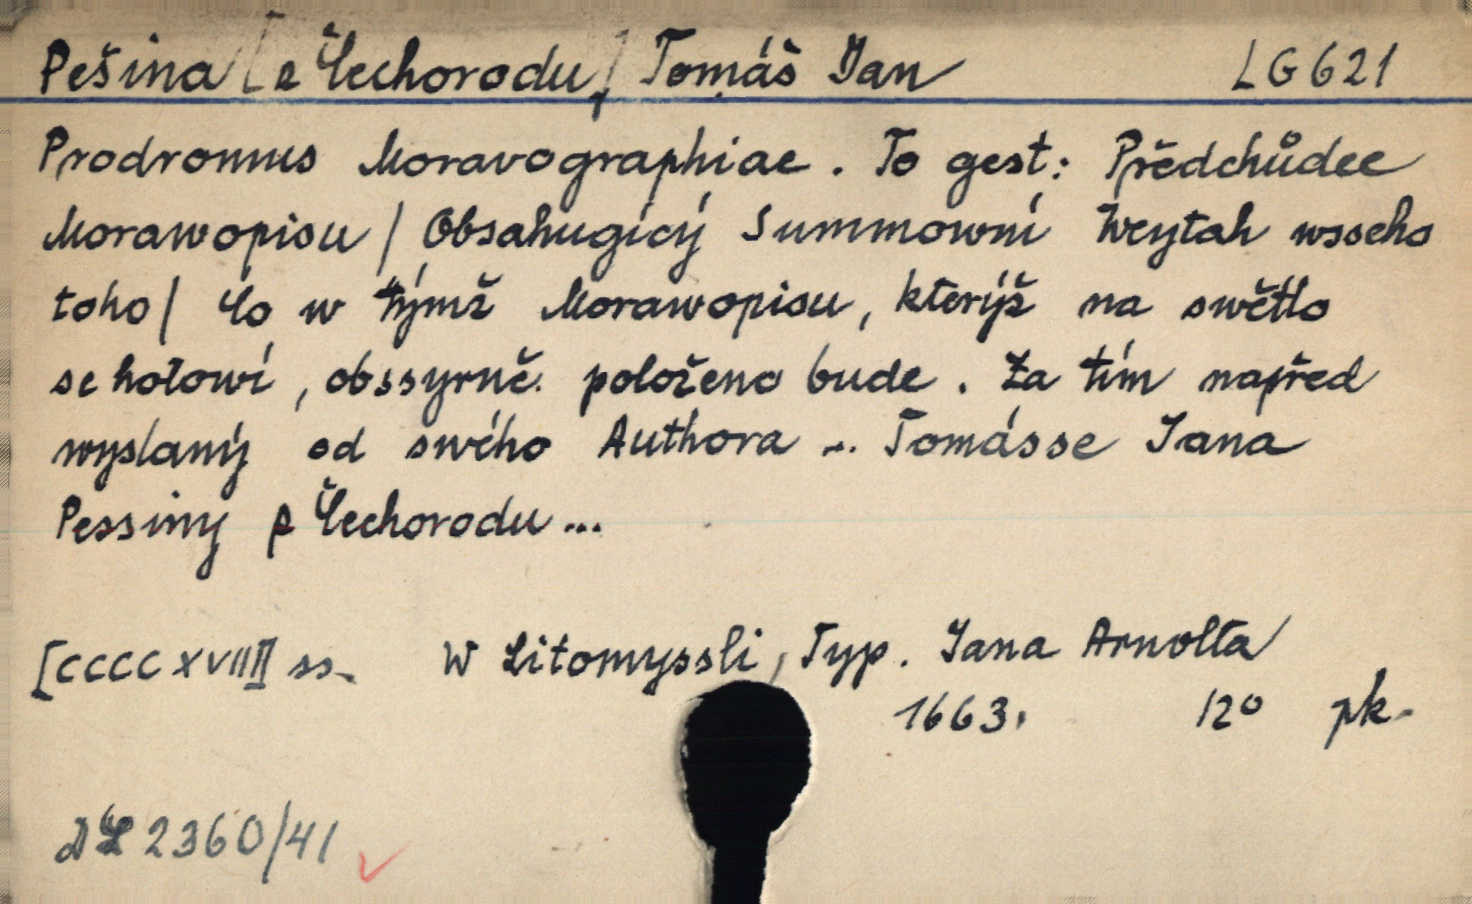 Pešina [z Čechorodu,] Tomáš Jan LG 621
Prodromus Moravographiae. To gest: Předchůdce
Morawopisu / Obsahugícý Summowní Weytah wsseho
toho / čo w týmž Morawopisu, kterýž na swětlo
se hotowí, obssyrně položeno bude. Za tím napřed
wyslaný od swého Authora ... Tomásse Jana
Pessiny z Čechorodu ...
[CCCCXVIII] ss. W Litomyssli, Typ. Jana Arnolta
1663. 12° pk.
2360/41